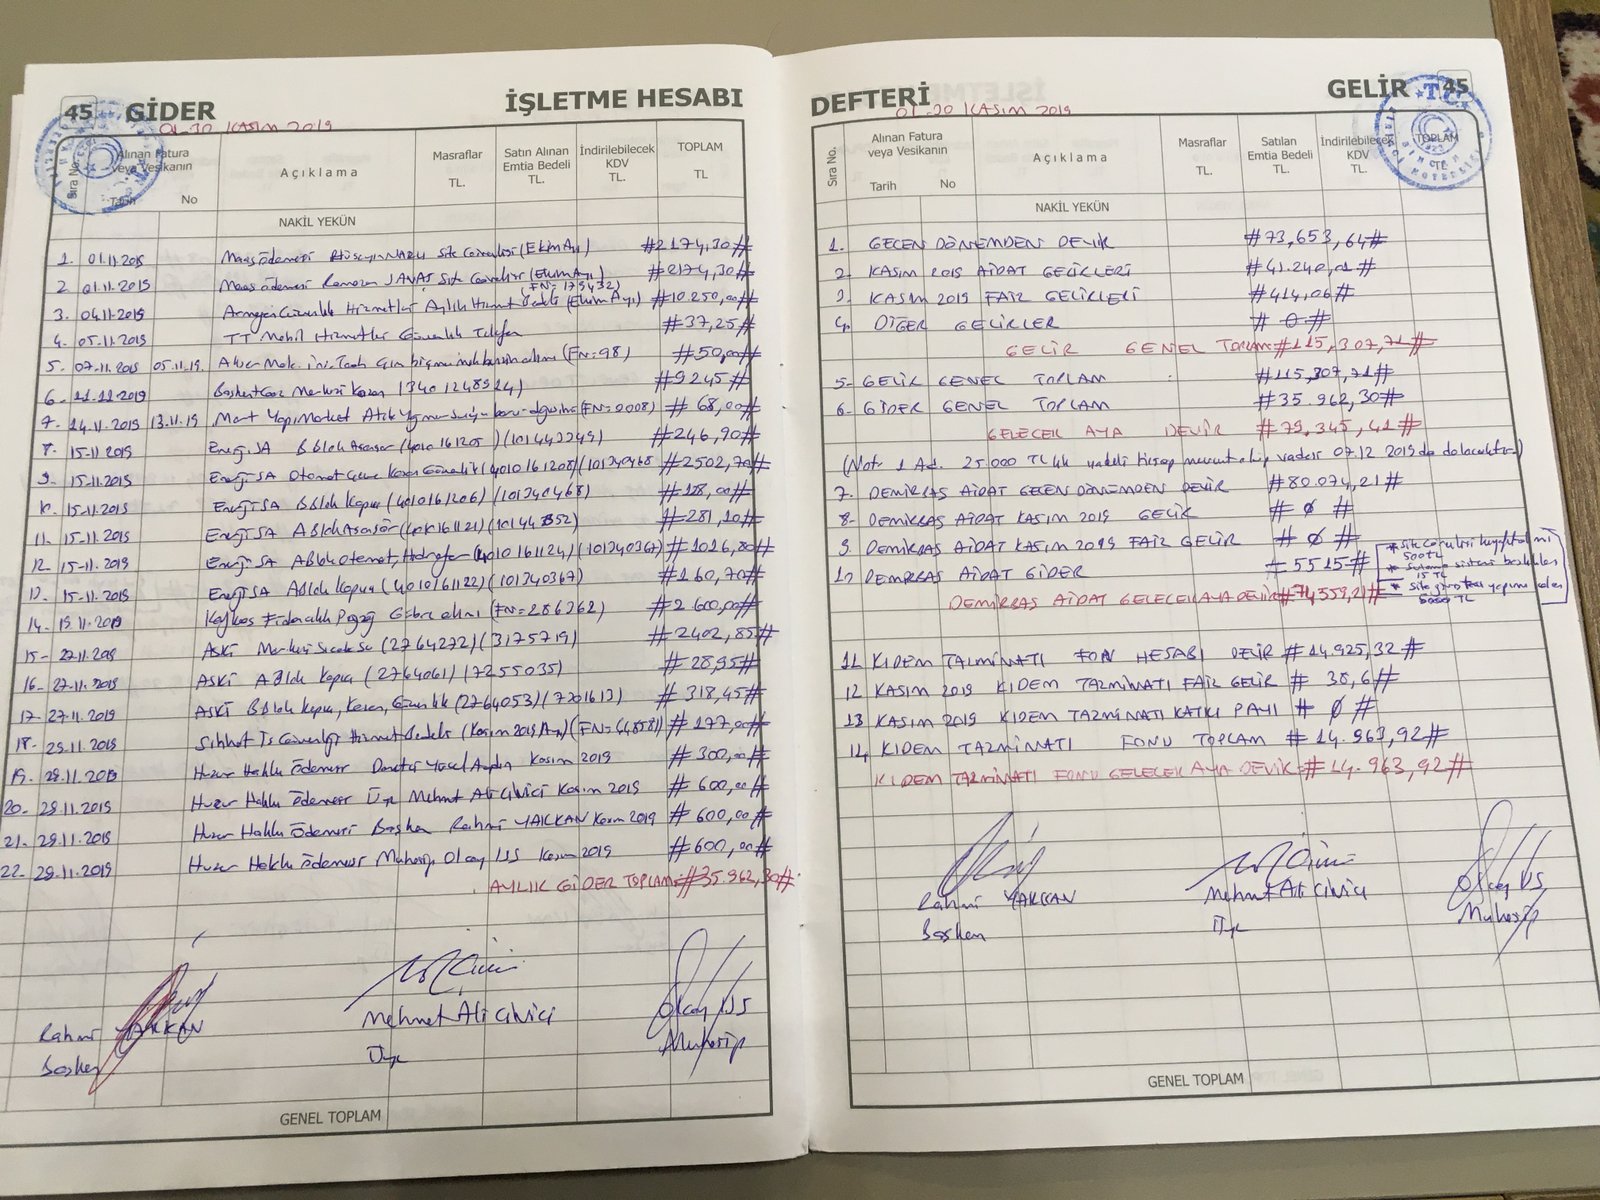 45 GİDER İŞLETME HESABI
01-30 KASIM 2019
Sıra No. Alınan Fatura veya Vesikanın Açıklama Masraflar TL. Satın Alınan Emtia Bedeli TL. İndirilebilecek KDV TL. TOPLAM TL
Tarih No
NAKİL YEKÜN
1. 01.11.2019 Maaş ödemesi Site Güvenlisi (Ekim Ayı) #2174,30#
2 01.11.2019 Maaş ödemesi Ramazan SAVAŞ Site Güvenlisi (Ekim Ayı) #2174,30#
3. 04.11.2019 Güvenlik Hizmetleri Aylık Hizmet Bedeli (Ekim Ayı) #10.250,00#
4. 05.11.2019 TT Mobil Hizmetler Güvenlik Telefon #37,25#
5. 07.11.2019 05.11.19 benzin alımı (FN=98) #50,00#
6. 11.11.2019 Başkentgaz Merkezi Kazan #9245#
7. 14.11.2019 13.11.19 Mert Yapı Market (FN=2008) #68,00#
8. 15.11.2019 EnerjiSA B Blok Asansör #246,90#
9. 15.11.2019 EnerjiSA Otomat Kazan Güvenlik (4010161208) #2502,70#
10. 15.11.2019 EnerjiSA B Blok Kapıcı (4010161206) (101240468) #128,00#
11. 15.11.2019 EnerjiSA A Blok Asansör #281,10#
12. 15.11.2019 EnerjiSA A Blok Otomat, Hidrofor (4010161124) (101240367) #1016,80#
13. 15.11.2019 EnerjiSA A Blok Kapıcı (4010161122) (101240367) #160,70#
14. 19.11.2019 Fidancılık Gübre alımı (FN=286262) #2600,00#
15- 27.11.2019 ASKİ Merkezi Sıcak Su (2764272) (3175719) #2402,85#
16- 27.11.2019 ASKİ A Blok Kapıcı (2764061) (7255035) #28,95#
17- 27.11.2019 ASKİ B Blok Kapıcı, Kazan, Güvenlik (2764053) (7201613) #318,45#
18- 29.11.2019 Sıhhat İş Güvenliği Hizmet Bedeli (Kasım 2019 Ayı) #177,00#
19. 29.11.2019 Huzur Hakkı Ödemesi Denetçi Yüsel Aydın Kasım 2019 #300,00#
20- 29.11.2019 Huzur Hakkı Ödemesi Üye Mehmet Ali Civici Kasım 2019 #600,00#
21- 29.11.2019 Huzur Hakkı Ödemesi Başkan Rahmi YARKAN Kasım 2019 #600,00#
22- 29.11.2019 Huzur Hakkı Ödemesi Muhasip Olcay US Kasım 2019 #600,00#
AYLIK GİDER TOPLAM: #35.962,30#
Rahmi YARKAN Mehmet Ali Civici Olcay US
Başkan Üye Muhasip
GENEL TOPLAM
DEFTERİ GELİR 45
01-30 KASIM 2019
Sıra No. Alınan Fatura veya Vesikanın Açıklama Masraflar TL. Satılan Emtia Bedeli TL. İndirilebilecek KDV TL. TOPLAM
Tarih No
NAKİL YEKÜN
1. GEÇEN DÖNEMDEN DEVİR #73,653,64#
2. KASIM 2019 AİDAT GELİRLERİ #41.240,01#
3. KASIM 2019 FAİZ GELİRLERİ #414,06#
4. DİĞER GELİRLER # 0 #
GELİR GENEL TOPLAM: #115,307,71#
5- GELİR GENEL TOPLAM : #115,307,71#
6- GİDER GENEL TOPLAM #35.962,30#
GELECEK AYA DEVİR #79,345,41#
(Not: 1 Ad. 25.000 TL lik vadeli hesap mevcut olup vadesi 07.12.2019 da dolacaktır)
7. DEMİRBAŞ AİDAT GEÇEN DÖNEMDEN DEVİR #80.074,21#
8- DEMİRBAŞ AİDAT KASIM 2019 GELİR # 0 #
9. DEMİRBAŞ AİDAT KASIM 2019 FAİZ GELİR # 0 #
10 DEMİRBAŞ AİDAT GİDER #5515#
500 TL
* Sulama sistemi
15 TL
* Site yapımı
5000 TL
DEMİRBAŞ AİDAT GELECEK AYA DEVİR #74559,21#
11 KIDEM TAZMİNATI FON HESABI DEVİR #14.925,32#
12 KASIM 2019 KIDEM TAZMİNATI FAİZ GELİR # 38,6#
13 KASIM 2019 KIDEM TAZMİNATI KATKI PAYI # 0 #
14 KIDEM TAZMİNATI FONU TOPLAM #14.963,92#
KIDEM TAZMİNATI FONU GELECEK AYA DEVİR: #14.963,92#
Rahmi YARKAN Mehmet Ali Civici Olcay US
Başkan Üye Muhasip
GENEL TOPLAM